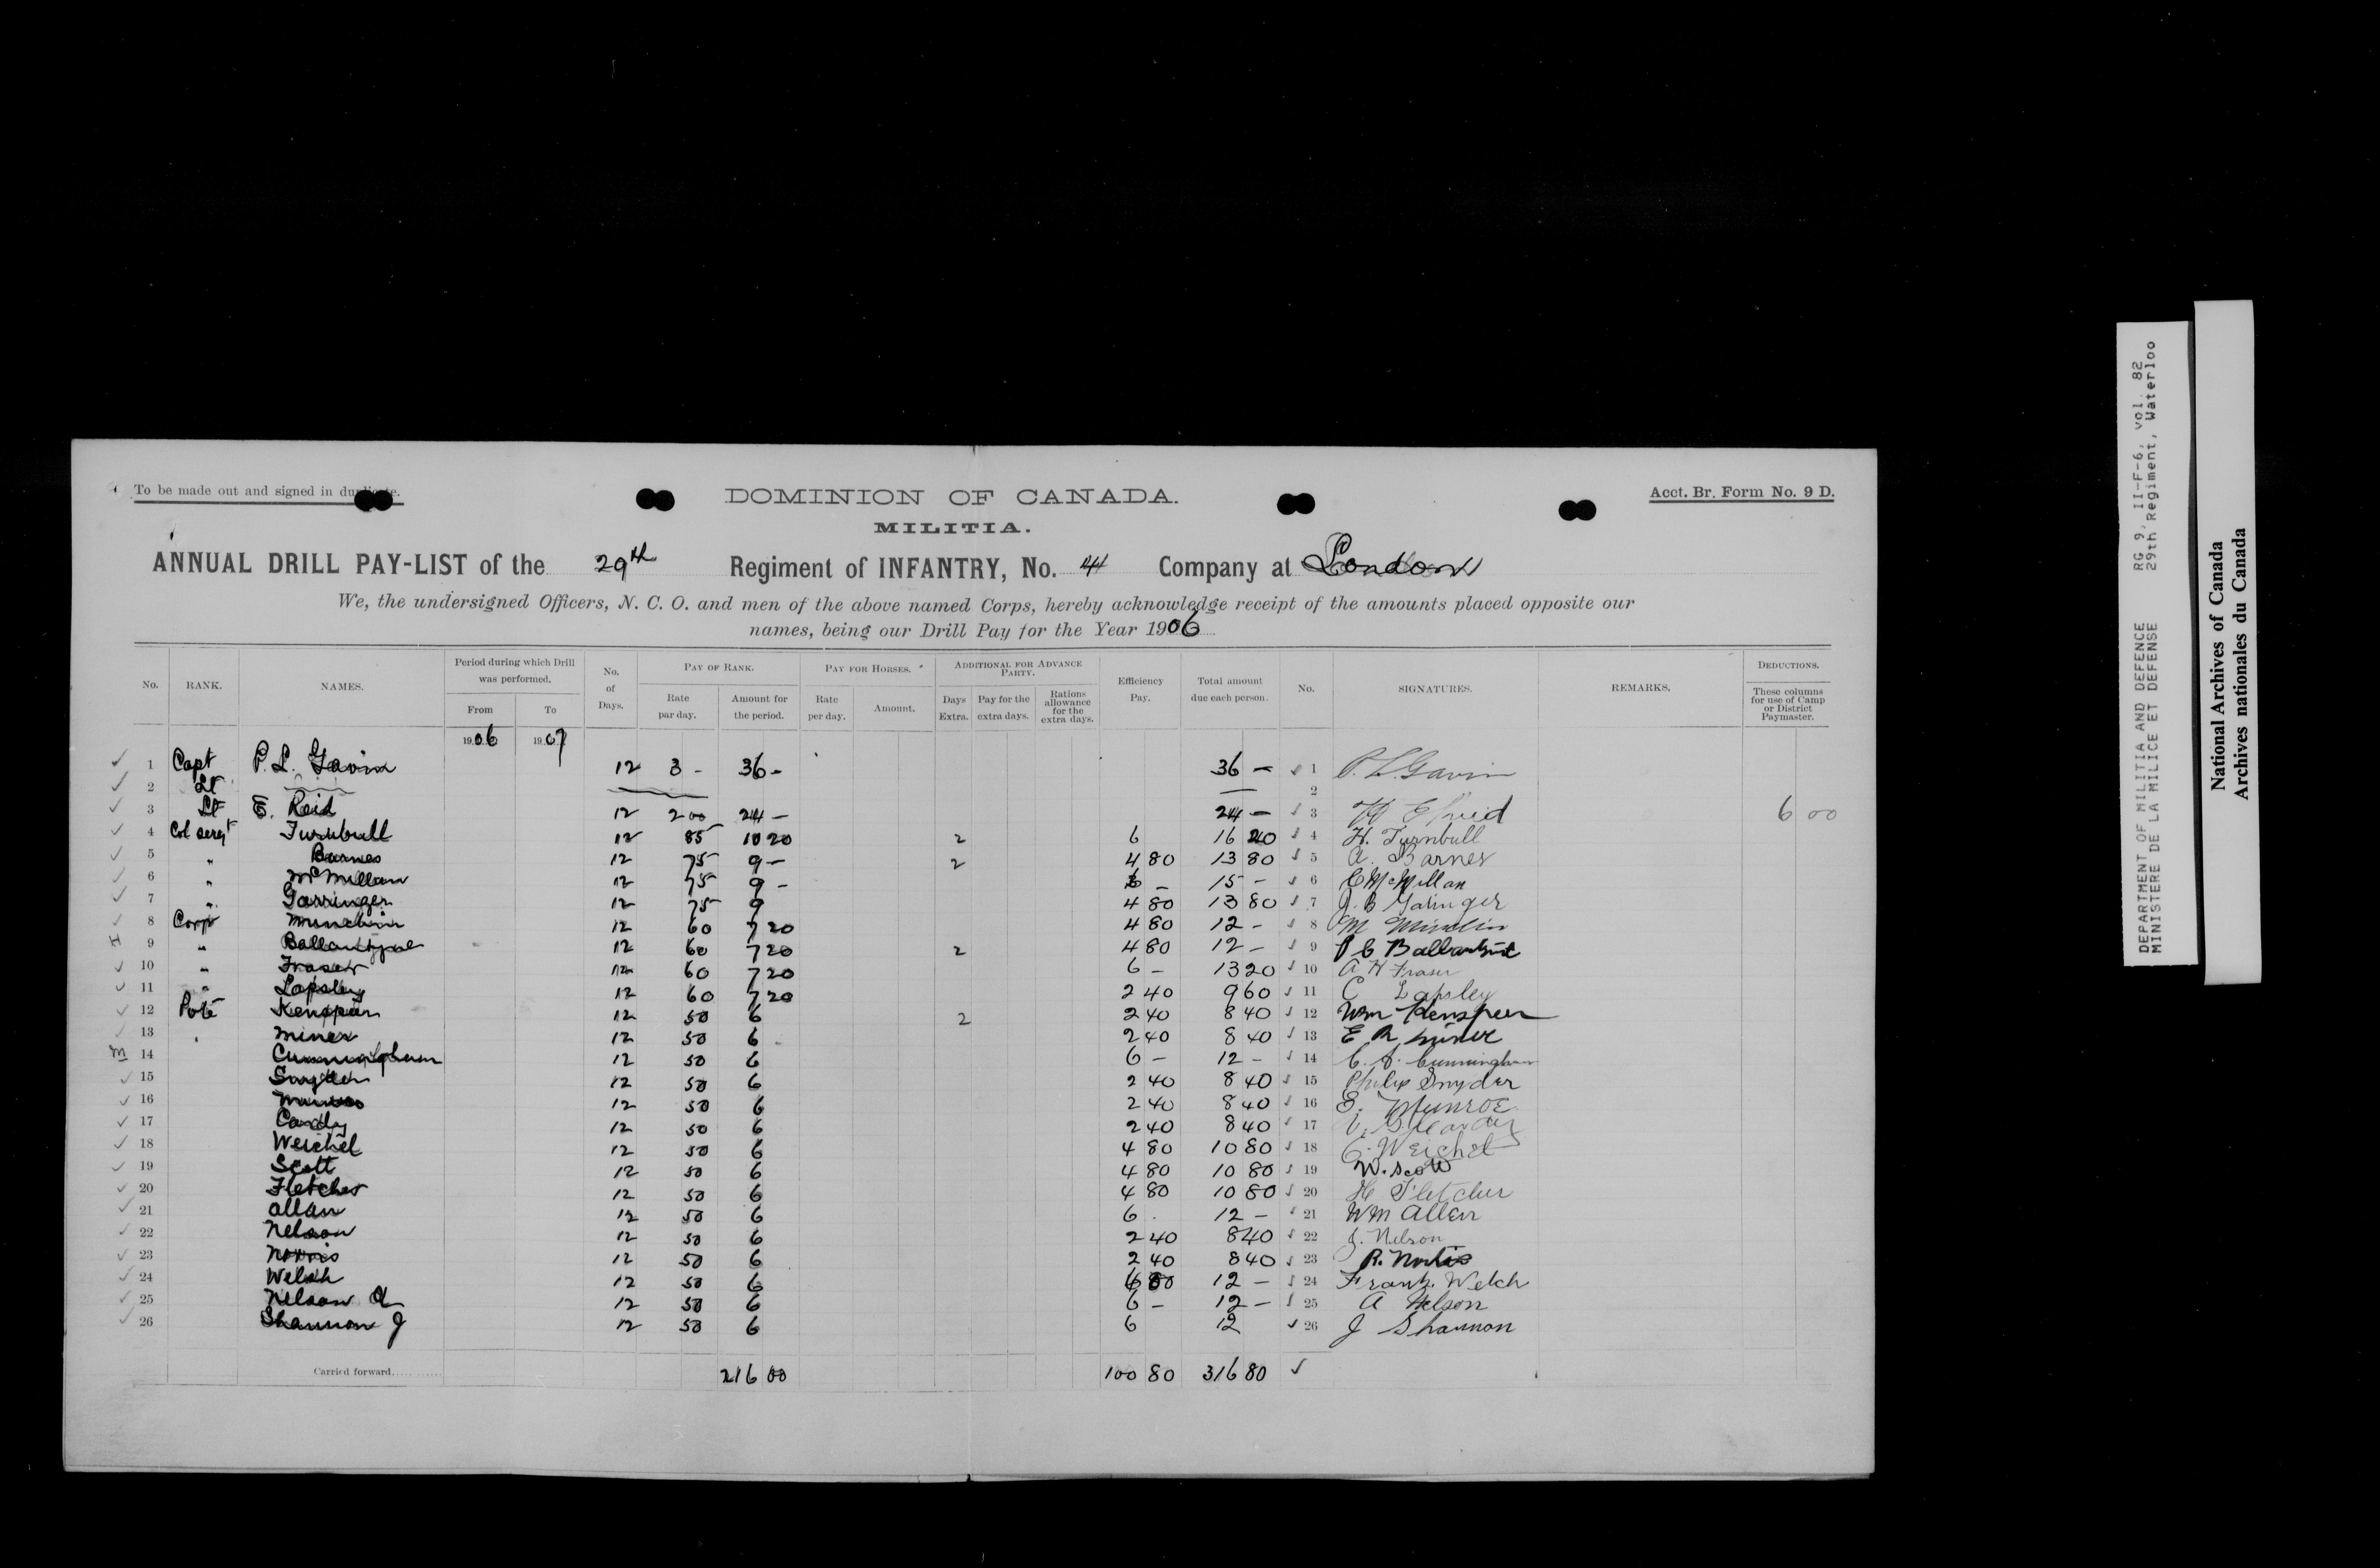 To be made out and signed in duplicate.
DOMINION OF CANADA.
Acct. Br. Form No. 9 D.
MILITIA.
ANNUAL DRILL PAY-LIST of the 29th Regiment of INFANTRY, No. 4 Company at London
We, the undersigned Officers, N. C. O. and men of the above named Corps, hereby acknowledge receipt of the amounts placed opposite our
names, being our Drill Pay for the Year 1906
No. RANK. NAMES. Period during which Drill was performed. From To No. of Days. PAY OF RANK. Rate par day. Amount for the period. PAY FOR HORSES. * Rate per day. Amount. ADDITIONAL FOR ADVANCE PARTY. Days Extra. Pay for the extra days. Rations allowance for the extra days. Efficiency Pay. Total amount due each person. No. SIGNATURES. REMARKS. DEDUCTIONS. These columns for use of Camp or District Paymaster.
1906 1907
1 Capt P. L. Gavin 12 3 - 36 - 36 - 1 P. L. Gavin
2 Lt — 2
3 Lt E. Reid 12 2 00 24 - 24 - 3 Reid 6 00
4 Col Sergt Turnbull 12 85 10 20 2 6 16 20 4 H. Turnbull
5 " Barnes 12 75 9 - 2 4 80 13 80 5 A. Barnes
6 " McMillan 12 75 9 - 6 - 15 - 6 C McMillan
7 " Garringer 12 75 9 4 80 13 80 7 J. B Garinger
8 Corp 12 60 7 20 4 80 12 - 8 M
9 " Ballantyne 12 60 7 20 2 4 80 12 - 9
10 " Fraser 12 60 7 20 6 - 13 20 10 A H Fraser
11 " Lapsley 12 60 7 20 2 40 9 60 11 C Lapsley
12 Pote 12 50 6 2 2 40 8 40 12 Wm
13 Miner 12 50 6 - 2 40 8 40 13 E R Miner
14 Cunningham 12 50 6 6 - 12 - 14 C. A. Cunningham
15 Snyder 12 50 6 2 40 8 40 15 Philip Snyder
16 Munroe 12 50 6 2 40 8 40 16 Munroe
17 12 50 6 2 40 8 40 17
18 Weichel 12 50 6 4 80 10 80 18 C. Weichel
19 Scott 12 50 6 4 80 10 80 19 W. Scott
20 Fletcher 12 50 6 4 80 10 80 20 H Fletcher
21 Allan 12 50 6 6 - 12 - 21 Wm Allen
22 Nelson 12 50 6 2 40 8 40 22 J. Nelson
23 Norris 12 50 6 2 40 8 40 23 R.
24 Welch 12 50 6 12 - 24 Frank Welch
25 Nelson A 12 50 6 6 - 12 - 25 A Nelson
26 Shannon J 12 50 6 6 12 26 J Shannon
Carried forward........... 216 00 100 80 316 80
DEPARTMENT OF MILITIA AND DEFENCE RG 9, II-F-6, vol. 82
MINISTERE DE LA MILICE ET DEFENSE 29th Regiment, Waterloo
National Archives of Canada
Archives nationales du Canada